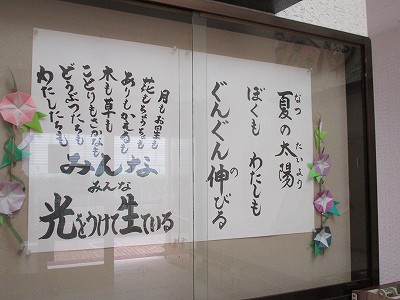 夏の太陽
なつ たいよう
ぼくも わたしも
ぐんぐん伸びる
の
月もお星も
花もちょうちょも
ありもかえるも
木も草も
ことりもさかなも
どうぶつたちも
わたしたちも
みんな
みんな
光をうけて生きている